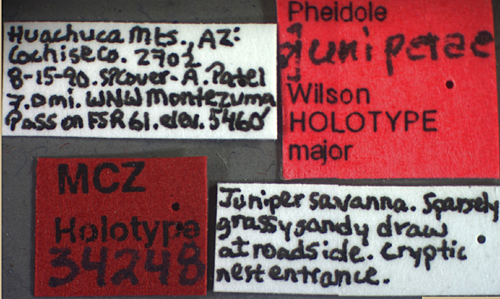 Huachuca Mts., AZ:
Cochise Co. 2701
8-15-90. SPCover-A. Patel
7.0mi. WNW Montezuma
Pass on FSR 61. elev. 5460'
Pheidole
juniperae
Wilson
HOLOTYPE
major
MCZ
Holotype
34248
Juniper savanna. Sparsely
grassy sandy draw
at roadside. Cryptic
nest entrance.